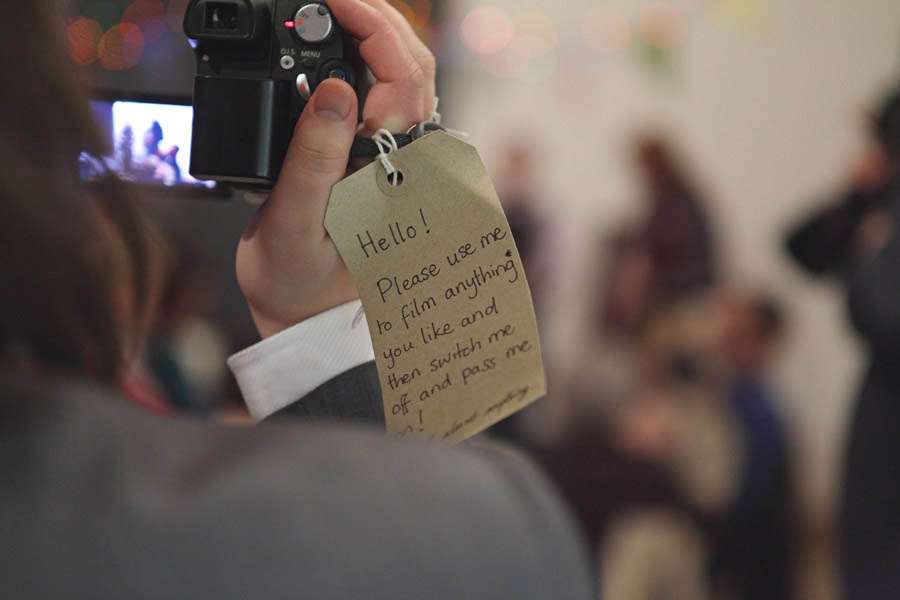 O.I.S MENU
Hello!
Please use me
to film anything*
you like and
then switch me
off and pass me
on!
almost anything